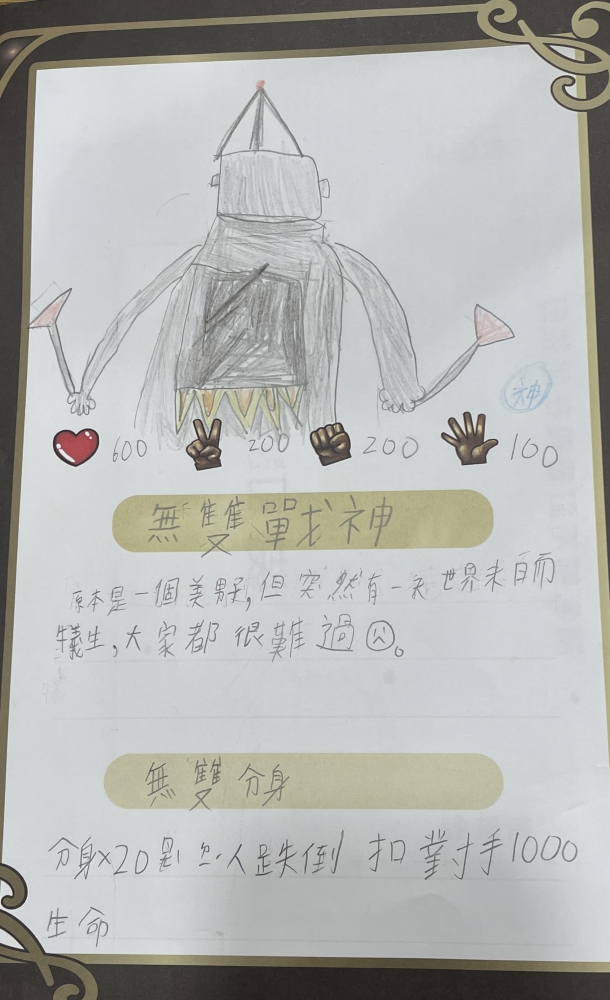 神
600 200 200 100
無雙戰神
原本是一個美男,但突然有一天世界末日而
犧生,大家都很難過。
無雙分身
分身×20 人跌倒 扣對手1000
生命